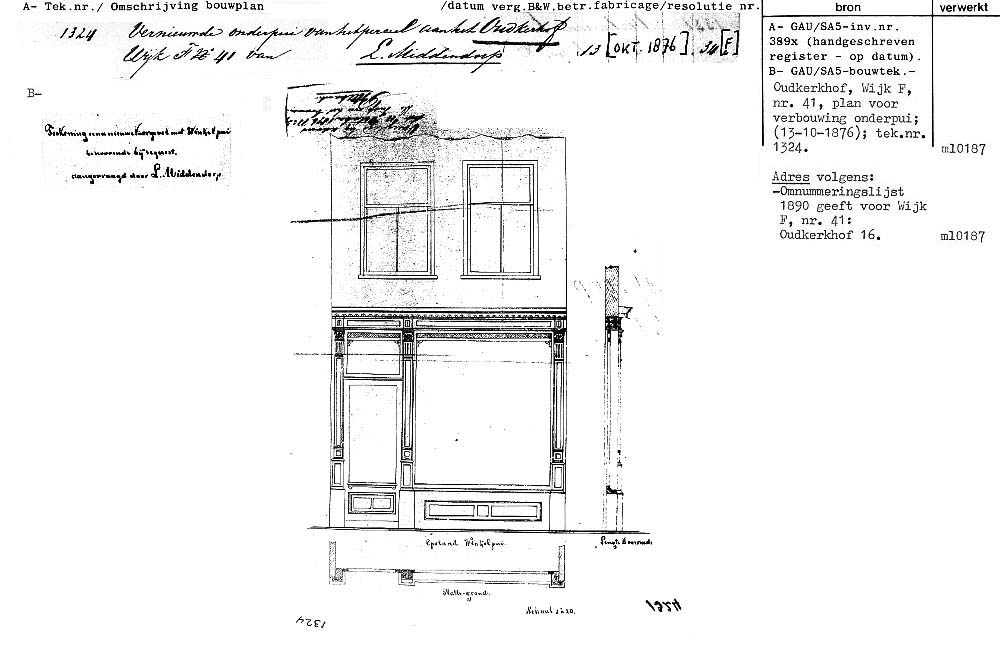 A- Tek.nr./ Omschrijving bouwplan /datum verg.B&W.betr.fabricage/resolutie nr.
bron
verwerkt
1324 Vernieuwde onderpui van het perceel aan het Oudkerkhof
Wijk F No 41 van L. Middendorp 13 [OKT. 1876]. 34 [F]
A- GAU/SA5-inv.nr.
389x (handgeschreven
register - op datum).
B- GAU/SA5-bouwtek.-
Oudkerkhof, Wijk F,
nr. 41, plan voor
verbouwing onderpui;
(13-10-1876); tek.nr.
1324.
ml0187
Adres volgens:
-Omnummeringslijst
1890 geeft voor Wijk
F, nr. 41:
Oudkerkhof 16.
ml0187
B-
Teekening van met Winkelpui
behoorende bij request.
aangevraagd door L. Middendorp.
Opstand Winkelpui.
Lengte Doorsnede
Platte-grond.
Schaal 1 à 20.
1324
1324